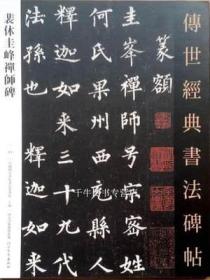 傳世經典書法碑帖
篆額
圭峯禪師号宗密姓
何氏果州西充縣人
釋迦如來三十九代
法孫也 釋迦如來
裴休圭峰禪師碑